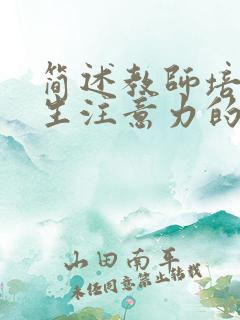 简述教师培
生注意力的
山田南平
未经同意禁止转载